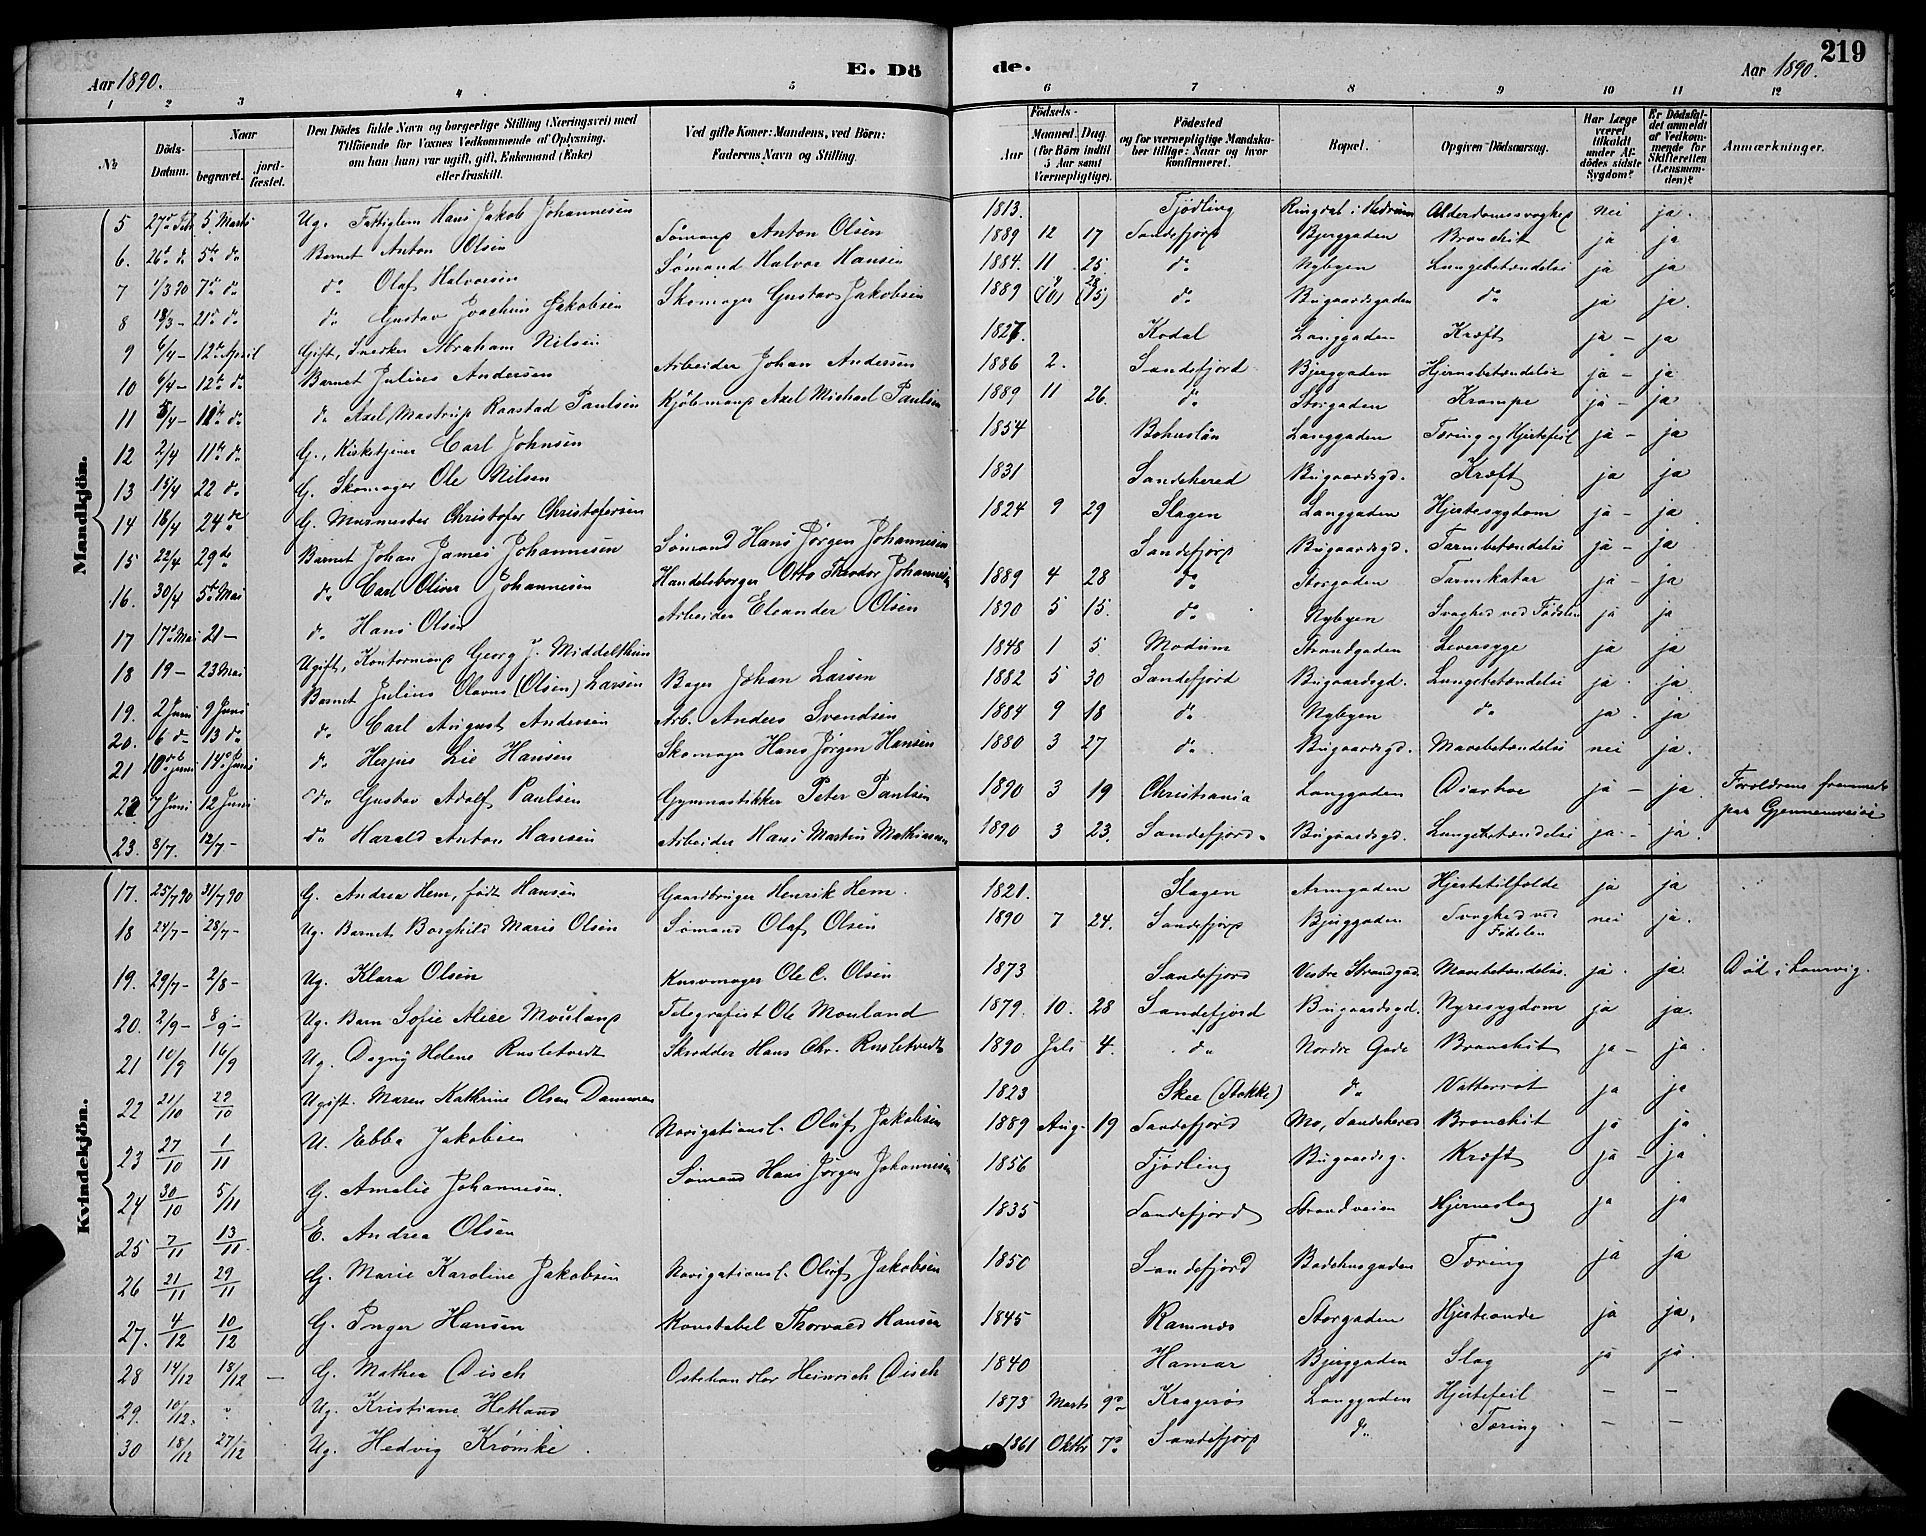 Aar 1890. E. Dö de. Aar 1890. 219
1 2 3 4 5 6 7 8 9 10 11 12
№ Döds-Datum. Naar begravet. jord-fæstet. Den Dödes fulde Navn og borgerlige Stilling (Næringsvei) med Tilföiende for Voxnes Vedkommende af Oplysning, om han (hun) var ugift, gift, Enkemand (Enke) eller fraskilt. Ved gifte Koner: Mandens, ved Börn: Faderens Navn og Stilling. Födsels- Aar Maaned. Dag. (for Börn indtil 5 Aar samt Værnepligtige). Födested og for værnepligtige Mandska-ber tillige: Naar og hvor Konfirmeret. Bopæl. Opgiven Dödsaarsag. Har Læge været tilkaldt under Af-dödes sidste Sygdom? Er Dödsfal-det anmeldt af Vedkom-mende for Skifteretten (Lensman-den)? Anmærkninger.
Mandkjön.
5 27de Feb 5 Marts Ug. Fattiglem Hans Jakob Johannesen 1813. Tjödling Ringdal i Hedrum Alderdomssvaghed nei ja.
6. 26de do 5te do Barnet Anton Olsen Sømand Anton Olsen 1889 12 17 Sandefjord Bjerggaden Bronchit ja ja
7 1/3 90 7de do do Olaf Halvorsen Sømand Halvor Hansen 1884. 11 25. do Nybyen Lungebetændelse ja ja
8 18/3 - 21de do do Gustav Joachim Jakobsen Skomager Gustav Jakobsen 1889 (10) (15) do Bugaardsgaden do ja ja.
9 6/4 - 12te April Gift, Snedker Abraham Nilsen 1827. Kodal Langgaden Kræft ja - ja
10 6/4 - 12te do Barnet Julius Andersen Arbeider Johan Andersen 1886 2. Sandefjord Bjerggaden Hjernebetændelse ja - ja
11 5/4 - 11te do do Axel Mastrup Raastad Paulsen Kjöbmand Axel Michael Paulsen 1889 11 26. do Storgaden Krampe ja - ja
12 2/4 11te do G., Kirketjener Carl Johnsen 1854 Bohuslän Langgaden Tæring og Hjertefeil ja - ja
13 15/4 22 do G. Skomager Ole Nilsen 1831 Sandehered Bugaardsgd. Kræft ja ja
14 18/4 24de G. Murmester Christofer Christofersen 1824 9 29 Slagen Langgaden Hjertesygdom ja - ja
15 22/4 29de Barnet Johan James Johannesen Sømand Hans Jørgen Johannesen Sandefjord Bugaardsgd. Tarmbetændelse ja - ja
16. 30/4 5te Mai do Carl Oliver Johannesen Handelsborger Otto Theodor Johannesen 1889 4 28 do Storgaden Tarmkatar ja - ja
17 17de Mai 21 - do Hans Olsen Arbeider Eleander Olsen 1890 5 15. do Nybyen Svaghed ved Fødslen ja ja
18 19 - 23 Mai Ugift, Kontormand Georg J. Middelthun 1848 1 5 Modum Strandgaden Leversyge ja ja
19. 2 Juni 9 Juni Barnet Julius Olavus (Olsen) Larsen Bager Johan Larsen 1882 5 30 Sandefjord Bugaardsgd. Lungebetændelse ja. ja.
20. 6 do 13 do do Carl August Andersen Arb. Anders Svendsen 1884 9 18 do Nybyen do ja. ja
21 10de Juni 14de Juni do Herjus Lie Hansen Skomager Hans Jørgen Hansen 1880 3 27 do Bugaardsgd. Mavebetændelse nei ja.
22 7 Juni 12 Juni do Gustav Adolf Paulsen Gymnastikker Peter Paulsen 1890 3 19 Christiania Langgaden Diarhoe ja - ja Forældrene fremmede paa Gjennemreise
23. 8/7. 12/7 - do Harald Anton Hansen Arbeider Hans Martin Mathiassen 1890 3 23. Sandefjord. Bugaardsgd. Lungebetændelse ja - ja.
Kvindekjön.
17. 25/7 90 31/7 90 G. Andrea Hem, født Hansen Gaardbruger Henrik Hem. 1821. Slagen Armgaden Hjertetilfælde ja ja
18 24/7 - 28/7 - Ug. Barnet Borghild Marie Olsen Sømand Olaf Olsen 1890 7 24. Sandefjord Bjerggaden Svaghed ved Fødslen nei ja.
19. 29/7 - 2/8 - Ug. Klara Olsen Kurvmager Ole C. Olsen 1873 Sandefjord Vestre Strandgad. Mavebetændelse. ja. ja Død i Laurvig.
20. 2/9 - 8/9 - Ug. Barn Sofie Alice Mouland Telegrafist Ole Mouland 1879. 10. 28 Sandefjord Bugaardsgd. Nyresygdom ja ja.
21 10/9 16/9 Ug. Dagny Helene Rusletvedt Skrædder Hans Chr. Rusletvedt 1890 Juli 4. do Nordre Gade Bronchit ja - ja.
22 21/10 22/10 Ugift. Maren Kathrine Olsen Dammen 1823 Skee (Stokke) do Vattersot ja ja
23 27/10 1/11 U. Ebba Jakobsen Navigationsl. Oluf Jakobsen 1889 Aug. 19 Sandefjord Mo, Sandehered Bronchit ja ja.
24 30/10 5/11 G. Amalie Johannesen. Sømand Hans Jørgen Johannesen 1856 Tjödling Bugaardsg. Kræft ja - ja
25 7/11 13/11 E. Andrea Olsen 1835 Sandefjord Strandveien Hjerneslag ja ja
26 21/11 29/11 G. Marie Karoline Jakobsen Navigationsl. Oluf Jakobsen 1850 Sandefjord Badehusgaden Tæring ja ja
27. 4/12 10/12 G. Inger Hansen Konstabel Thorvald Hansen 1845 Ramnes Storgaden Hjerteonde ja ja,
28 14/12 18/12 - G. Mathea Disch Ostehandler Heinrich Disch 1840 Hamar Bjerggaden Slag ja ja.
29. 10/12. " Ug. Kristiane Hetland 1873 Marts 9de Kragerøs Langgaden Hjertefeil - -
30 18/12 27/12 Ug. Hedvig Krømke. 1861 Oktbr 7de Sandefjord do Tæring - -